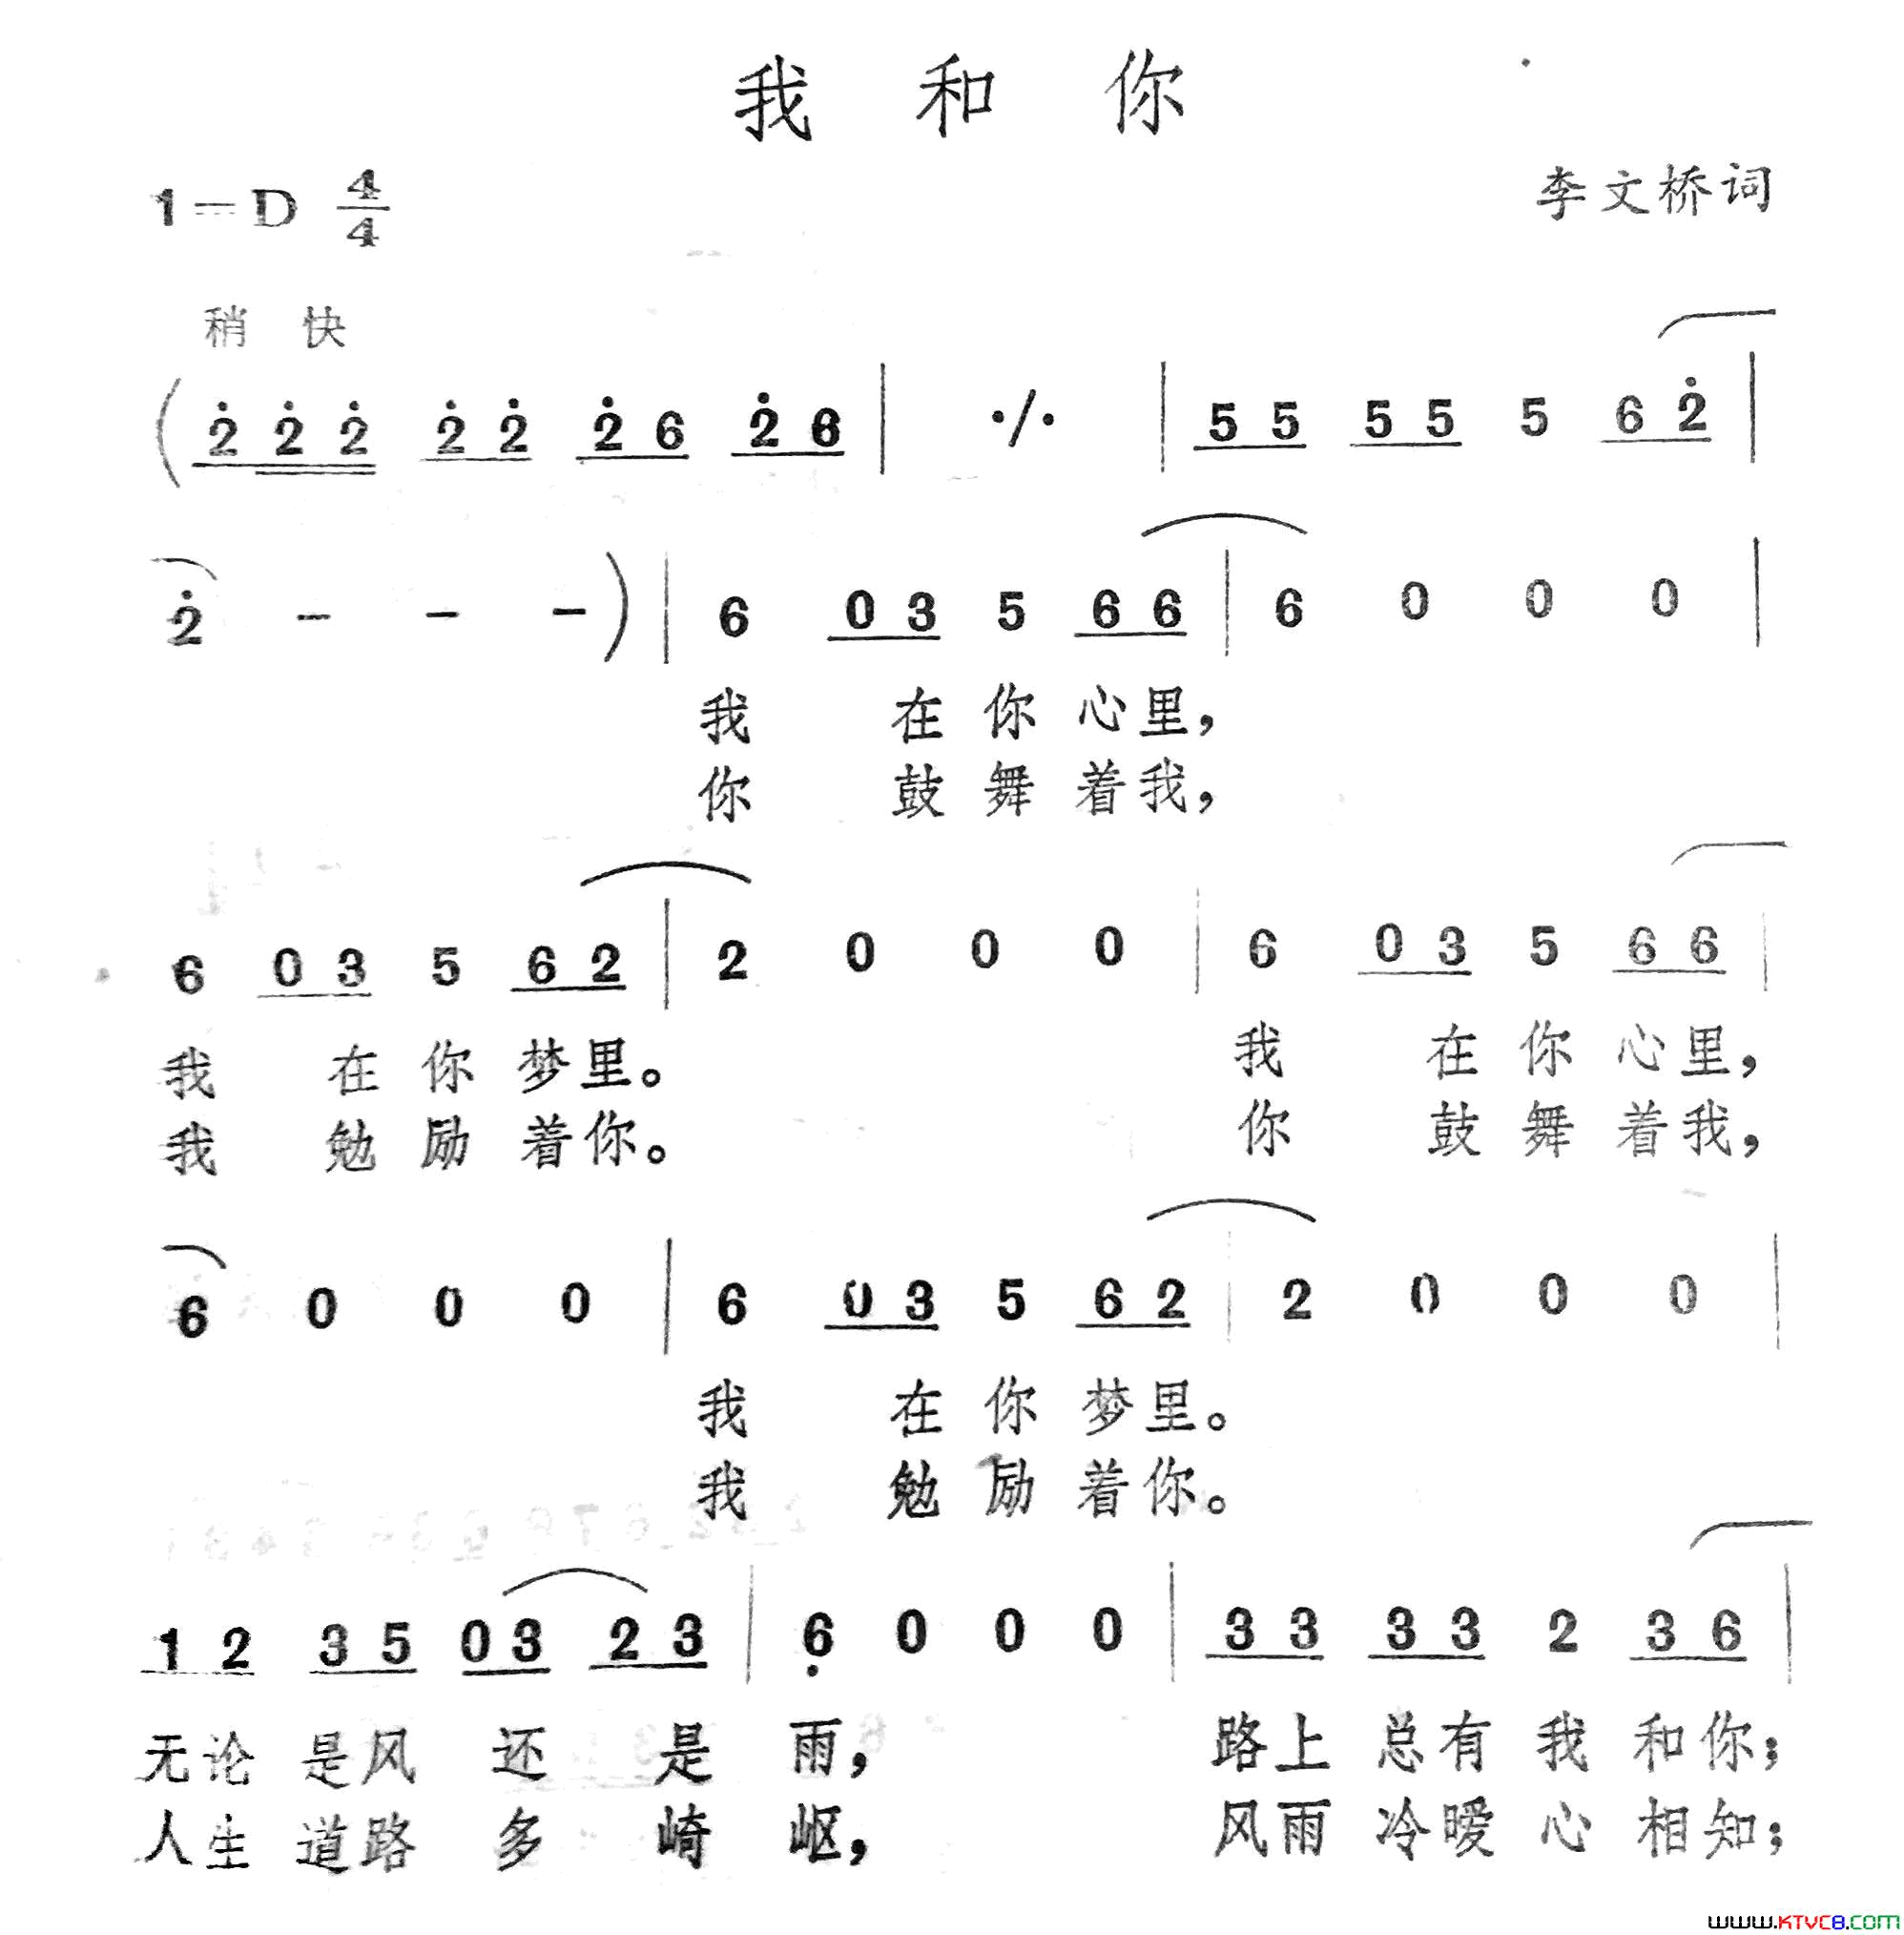 我和你
1=D 4/4
李文桥词
稍快
(2̇ 2̇ 2̇ 2̇ 2̇ 2̇ 6 2̇ 6 | ·/· | 5 5 5 5 5 6 2̇ |
2̇ - - - ) | 6 0 3 5 6 6 | 6 0 0 0 |
我 在你心里，
你 鼓舞着我，
6 0 3 5 6 2 | 2 0 0 0 | 6 0 3 5 6 6 |
我 在你梦里。 我 在你心里，
我 勉励着你。 你 鼓舞着我，
6 0 0 0 | 6 0 3 5 6 2 | 2 0 0 0 |
我 在你梦里。
我 勉励着你。
1 2 3 5 0 3 2 3 | 6̣ 0 0 0 | 3 3 3 3 2 3 6 |
无论是风还是雨， 路上总有我和你；
人生道路多崎岖， 风雨冷暧心相知；
www.KTVC8.COM